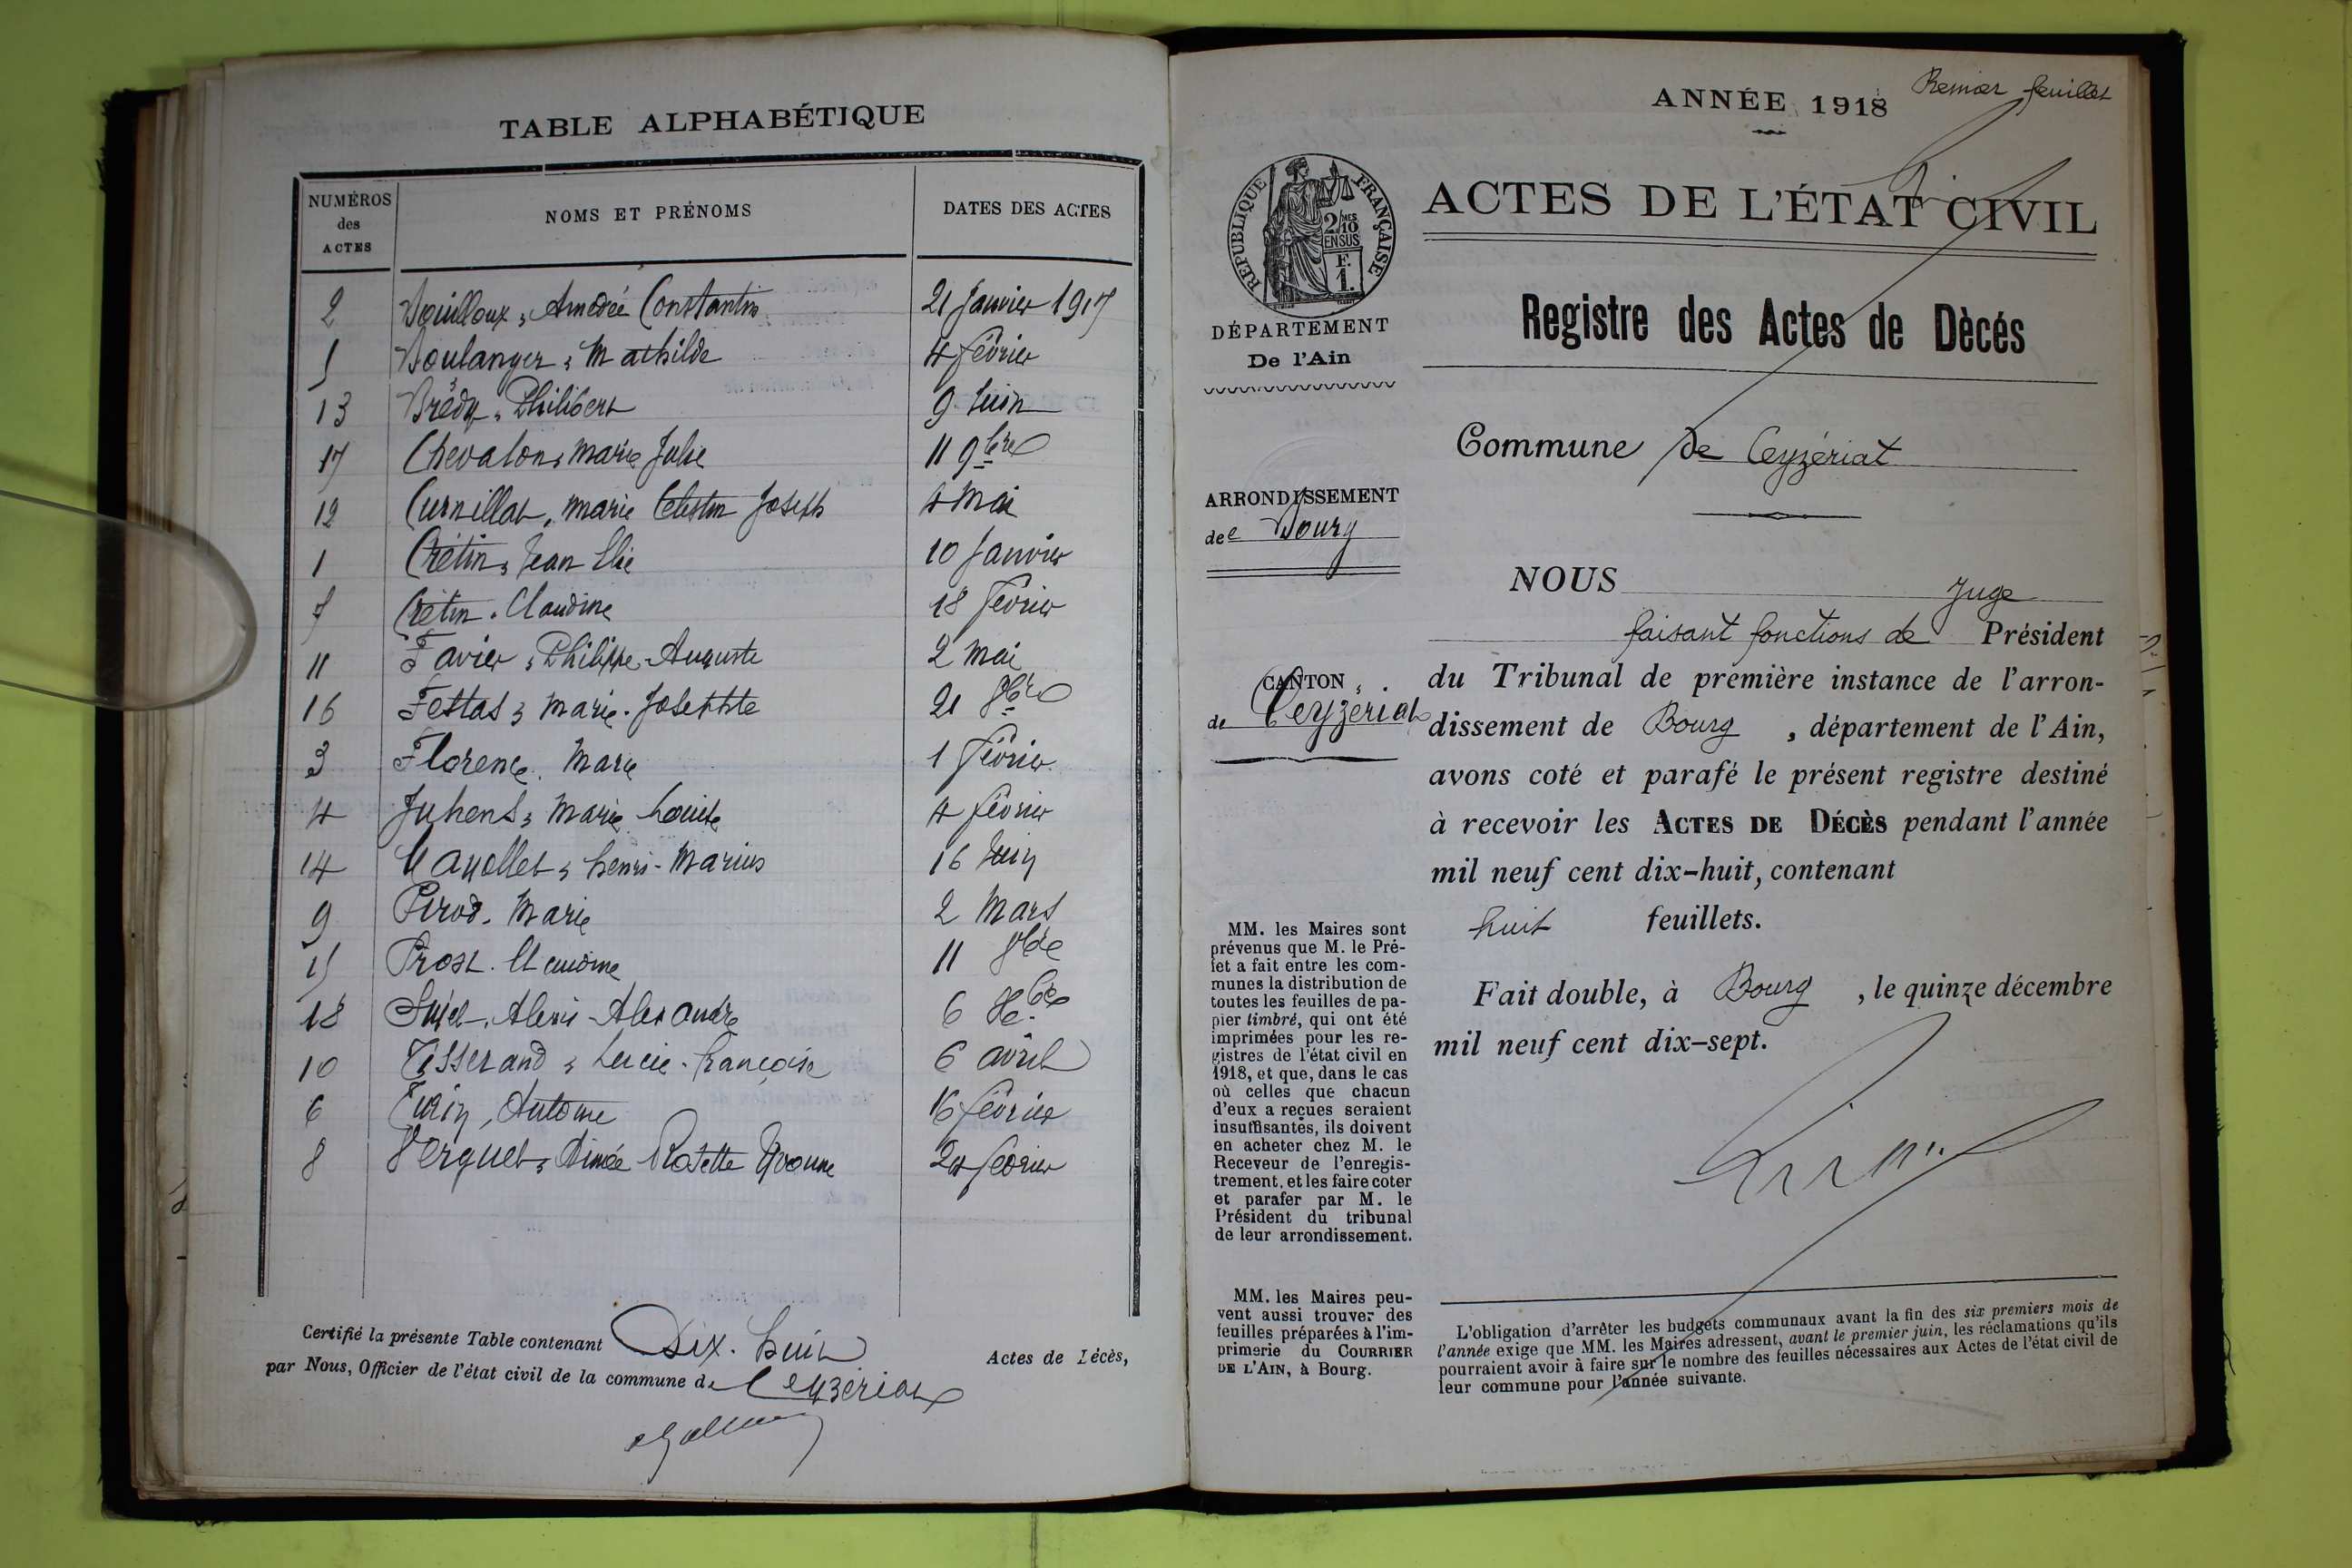 TABLE ALPHABÉTIQUE
NUMÉROS des ACTES
NOMS ET PRÉNOMS
DATES DES ACTES
2 Bouilloux, Amédée Constantin 21 Janvier 1917
5 Boulanger, Mathilde 4 février
13 Brédy, Philibert 9 Juin
17 Chevalon, Marie Julie 11 9bre
12 Curnillat, Marie Celestin Joseph 4 Mai
1 Crétin, Jean Elie 10 Janvier
7 Crétin, Claudine 18 février
11 Favier, Philippe-Auguste 2 Mai
16 Festas, Marie-Josephte 21 8bre
3 Florence, Marie 1 février
4 Juhens, Marie Louise 4 février
14 henri-Marius 16 Juin
9 Pirod, Marie 2 Mars
15 Prost. Claudine 11 8bre
18 Alexis-Alexandre 6
10 Tisserand, Lucie-françoise 6 avril
6 Antoine 16 février
8 Verguet, Aimée Rosette Yvonne 24 février
Certifié la présente Table contenant Dix-huit Actes de Décès,
par Nous, Officier de l'état civil de la commune de Ceyzériat
Premier feuillet
ANNÉE 1918
RÉPUBLIQUE FRANÇAISE
2/10MES
EN SUS
F.
1.
DÉPARTEMENT
De l'Ain
ACTES DE L'ÉTAT CIVIL
Registre des Actes de Dècés
Commune de Ceyzériat
ARRONDISSEMENT
de Bourg
CANTON
de Ceyzériat
NOUS Juge
faisant fonctions de Président
du Tribunal de première instance de l'arron-
dissement de Bourg, département de l'Ain,
avons coté et parafé le présent registre destiné
à recevoir les ACTES DE DÉCÈS pendant l'année
mil neuf cent dix-huit, contenant
huit feuillets.
Fait double, à Bourg, le quinze décembre
mil neuf cent dix-sept.
MM. les Maires sont
prévenus que M. le Pré-
fet a fait entre les com-
munes la distribution de
toutes les feuilles de pa-
pier timbré, qui ont été
imprimées pour les re-
gistres de l'état civil en
1918, et que, dans le cas
où celles que chacun
d'eux a reçues seraient
insuffisantes, ils doivent
en acheter chez M. le
Receveur de l'enregis-
trement, et les faire coter
et parafer par M. le
Président du tribunal
de leur arrondissement.
MM. les Maires peu-
vent aussi trouver des
feuilles préparées à l'im-
primerie du COURRIER
DE L'AIN, à Bourg.
L'obligation d'arrêter les budgets communaux avant la fin des six premiers mois de
l'année exige que MM. les Maires adressent, avant le premier juin, les réclamations qu'ils
pourraient avoir à faire sur le nombre des feuilles nécessaires aux Actes de l'état civil de
leur commune pour l'année suivante.